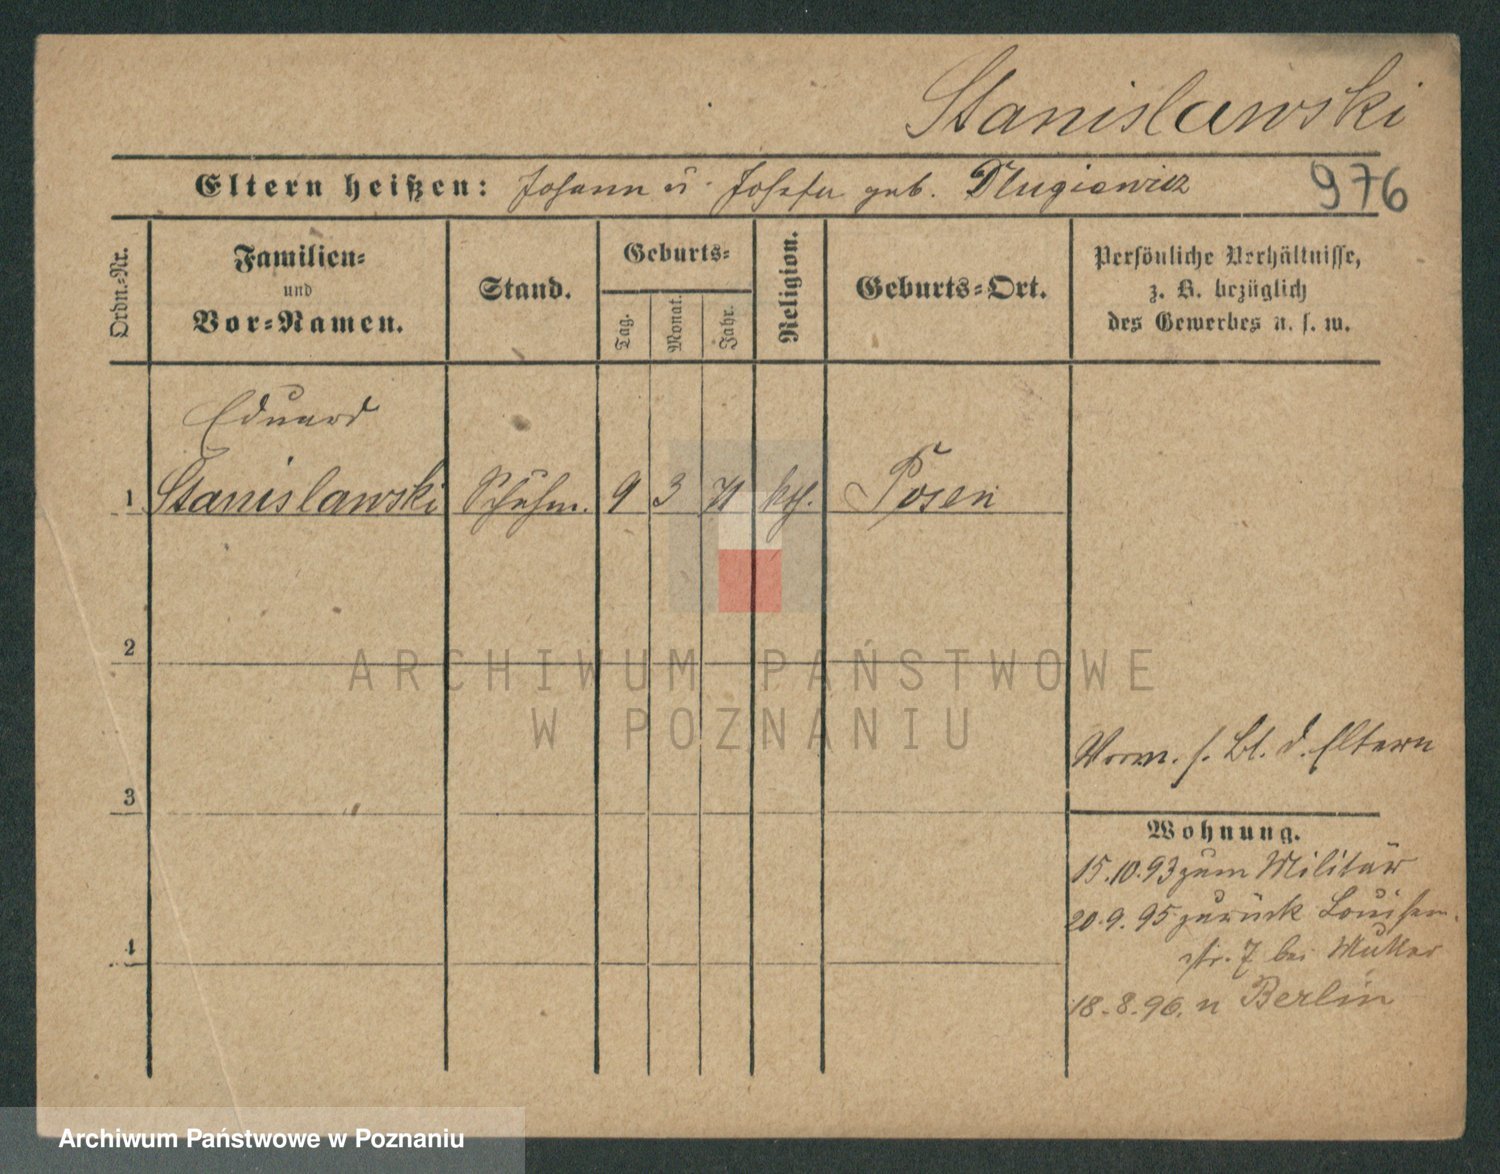 Stanislawski
Eltern heißen: Johann u. Josefa geb. Dlugiewicz 976
Ordn.-Nr.
Familien-
und
Vor-Namen.
Stand.
Geburts-
Tag.
Monat.
Jahr.
Religion.
Geburts-Ort.
Persönliche Verhältnisse,
z. B. bezüglich
des Gewerbes u. s. w.
Eduard
1 Stanislawski Schuhm. 9 3 71 kth. Posen
2
3
4
Vorm. s. Bl. d. Eltern
Wohnung.
15.10.93 zum Militär
20.9.95 zurück Louisen-
str. 7 bei Mutter
18.8.96. n Berlin
ARCHIWUM PAŃSTWOWE
W POZNANIU
Archiwum Państwowe w Poznaniu